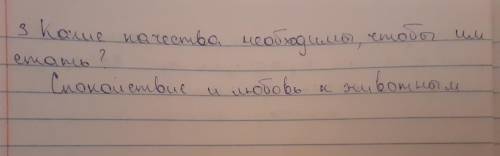 3 Какие качества необходимы, чтобы им
стать?
Спокойствие и любовь к животным